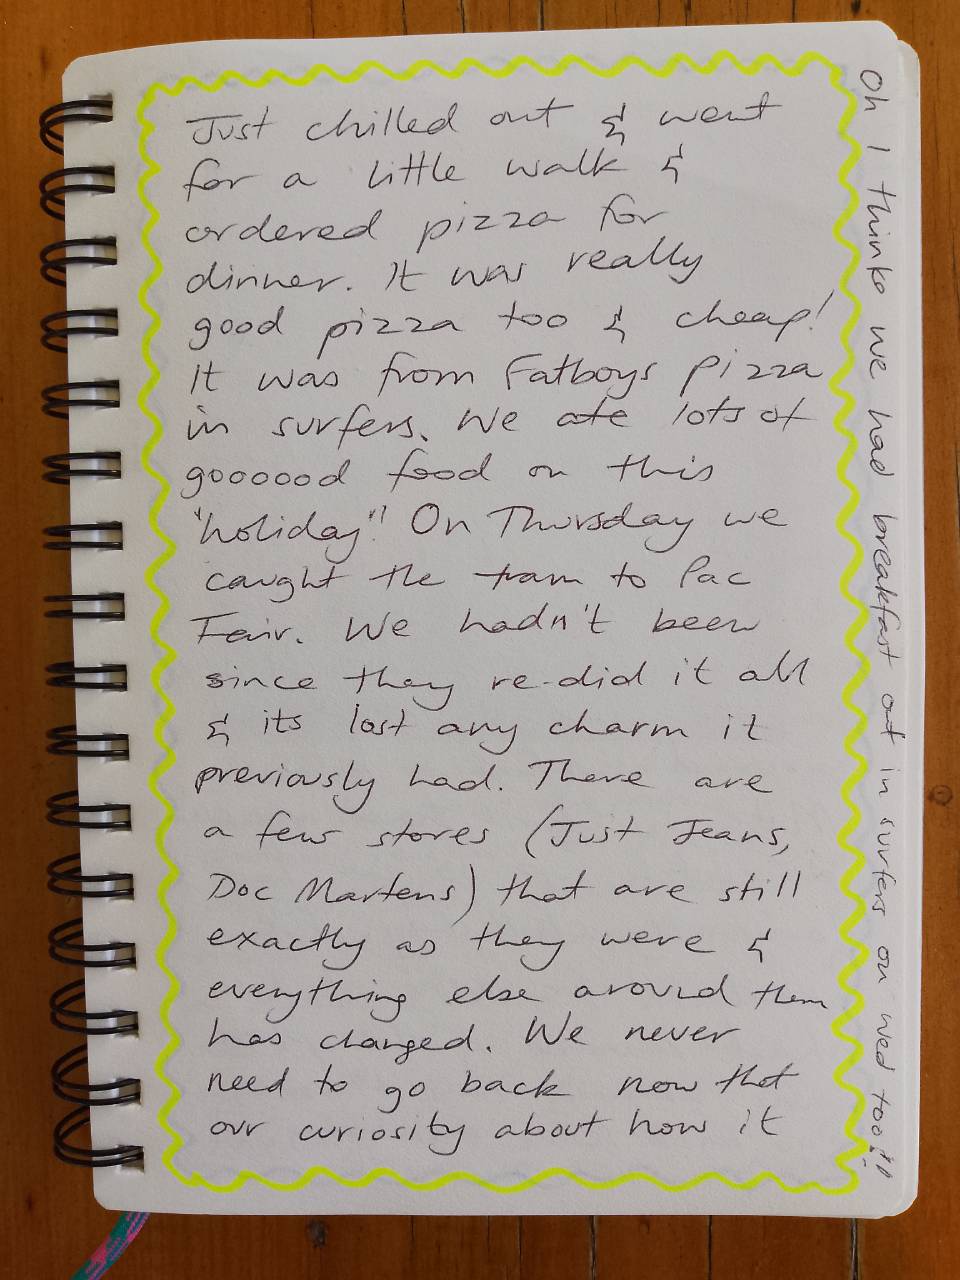 Just chilled out & went
for a little walk &
ordered pizza for
dinner. It was really
good pizza too & cheap!
It was from Fatboys Pizza
in surfers. We ate lots of
goooood food on this
"holiday"! On Thursday we
caught the tram to Pac
Fair. We hadn't been
since they re-did it all
& its lost any charm it
previously had. There are
a few stores (Just Jeans,
Doc Martens) that are still
exactly as they were &
everything else around them
has changed. We never
need to go back now that
our curiosity about how it
Oh I thinko we had breakfast out in surfers on wed too!!